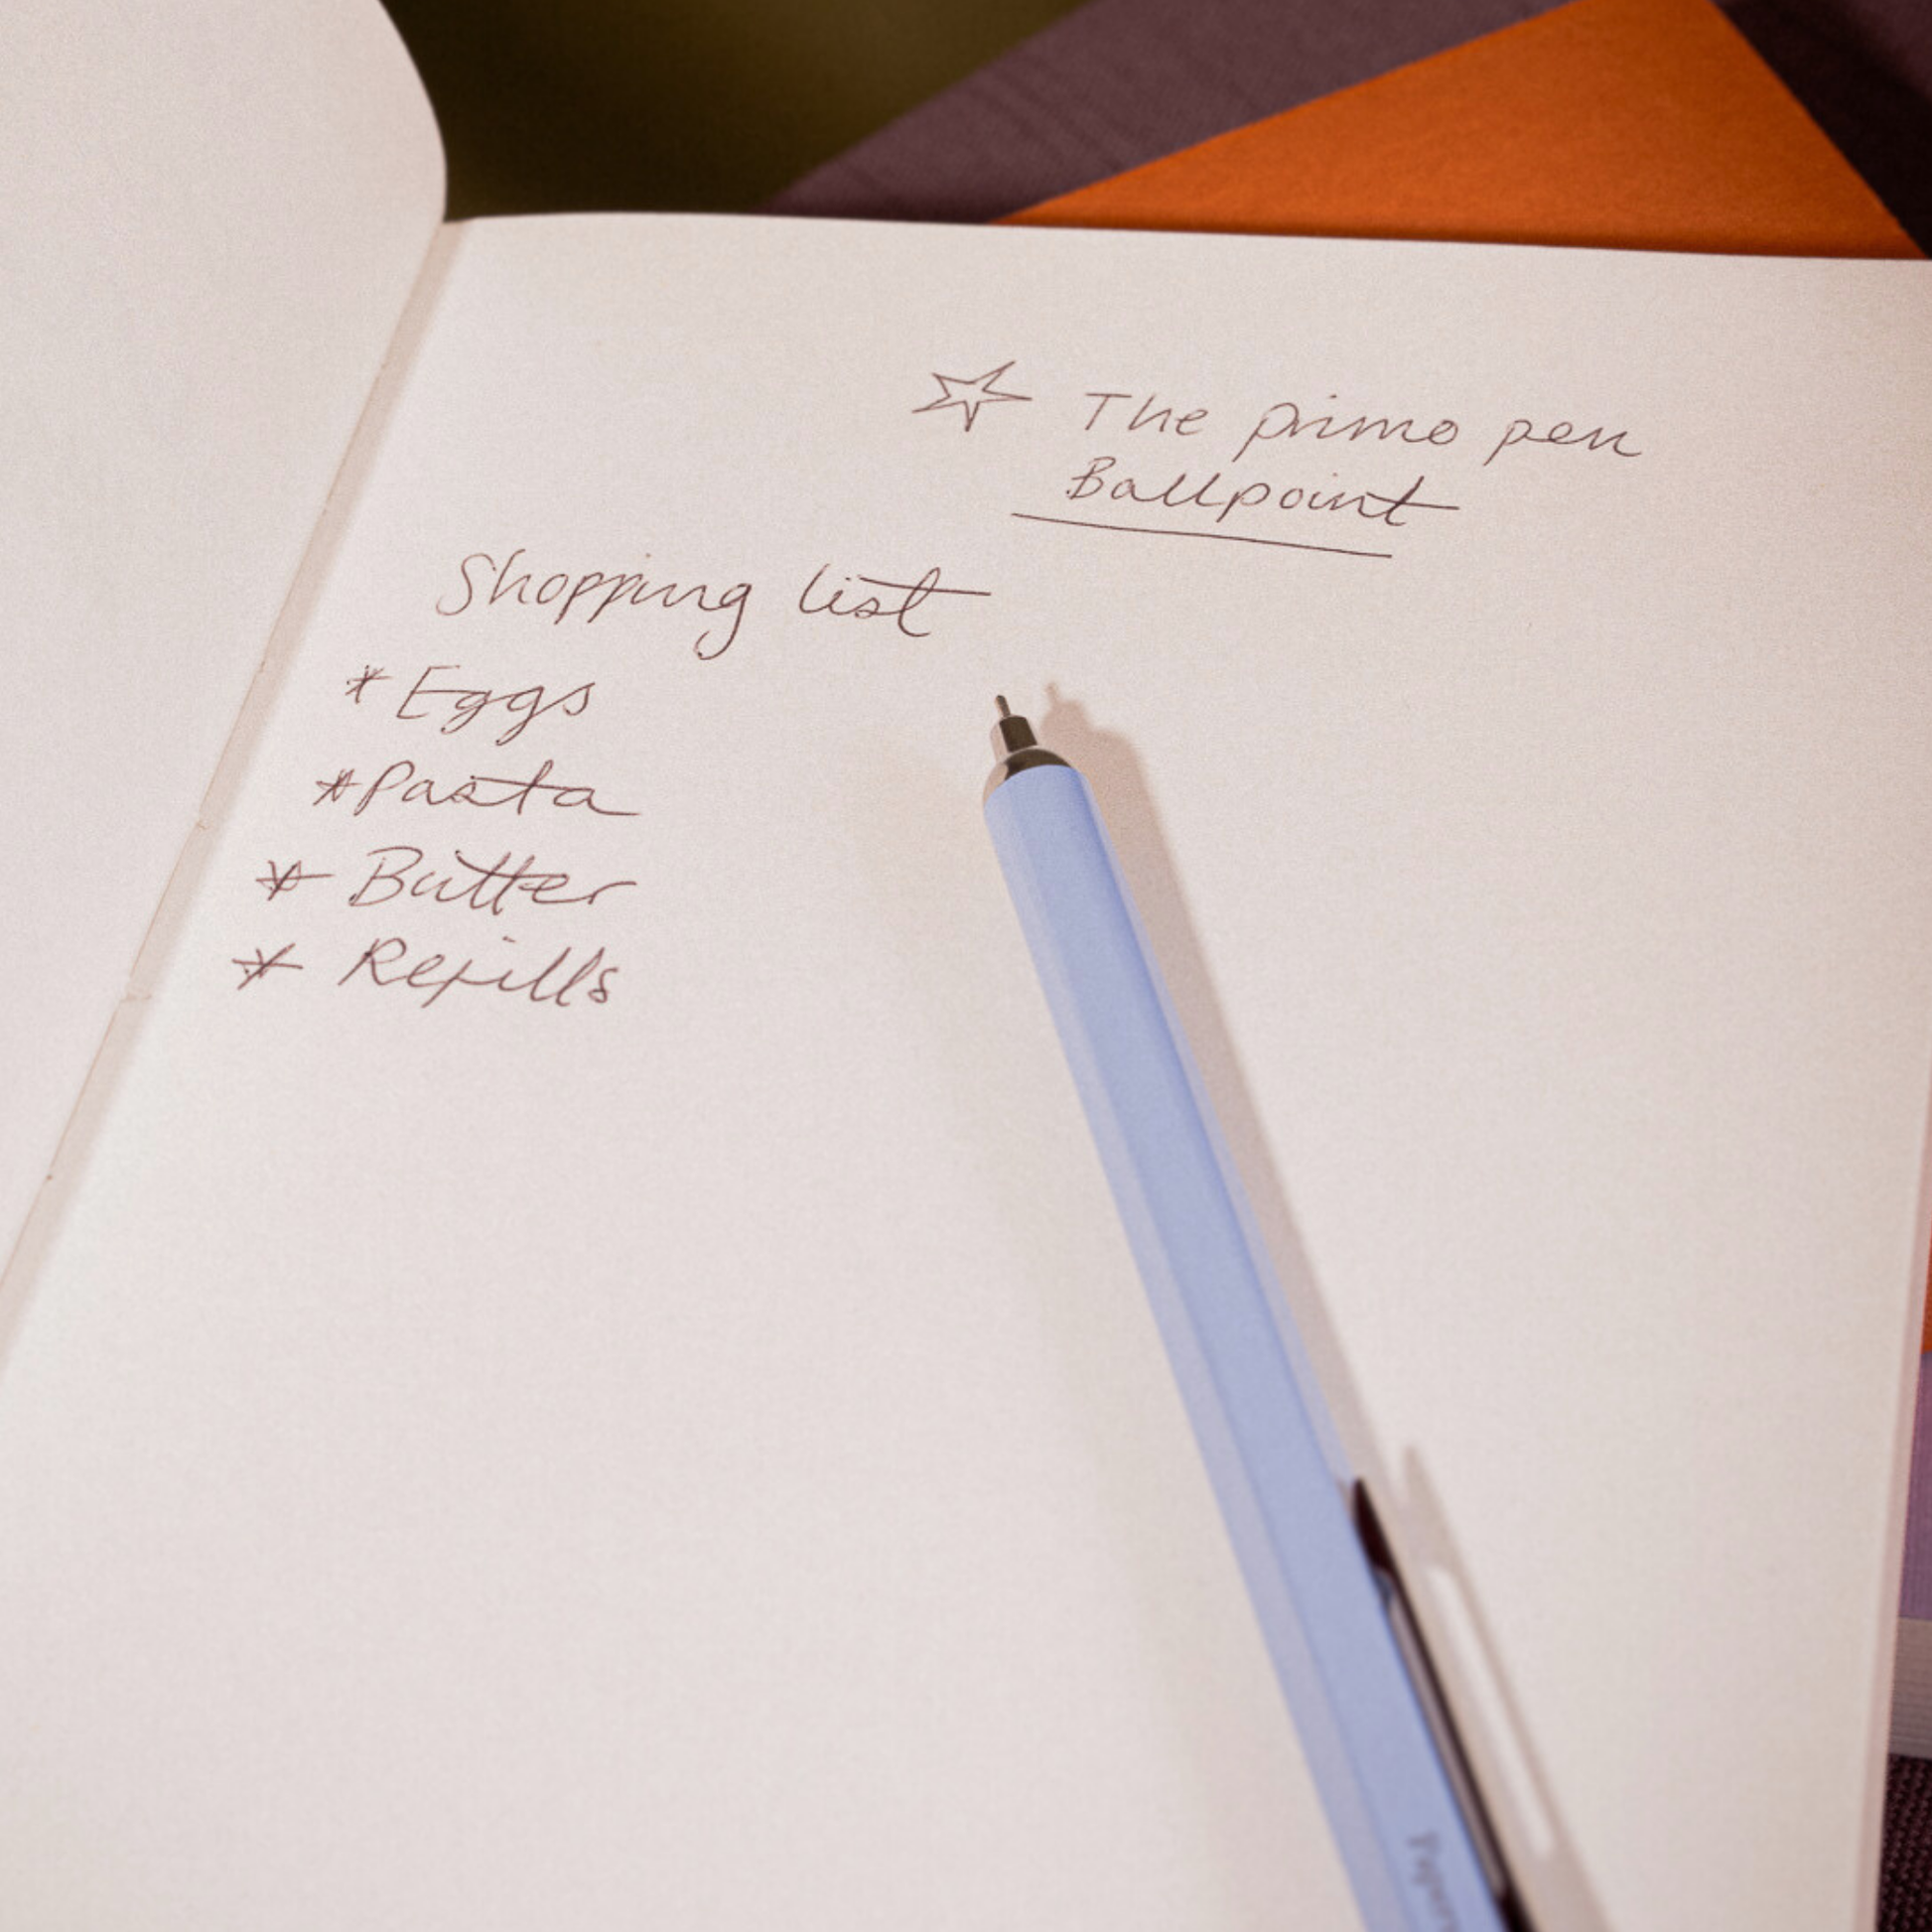 The primo pen
Ballpoint
Shopping list
* Eggs
* Pasta
* Butter
* Refills